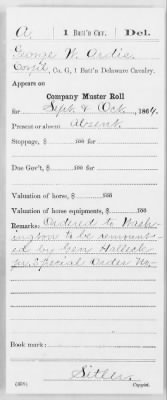 A | 1 Batt'n Cav. | Del.
George W. Ordis
Corp'l, Co. G, 1 Batt'n Delaware Cavalry.
Appears on
Company Muster Roll
for Sept & Oct, 1864.
Present or absent Absent
Stoppage, $ 100 for
Due Gov't, $ 100 for
Valuation of horse, $ 100
Valuation of horse equipments, $ 100
Remarks: Ordered to Wash-
ington to be remount-
ed by Gen Halleck
pr. Special Order No-
Book mark:
Sitler
(358) Copyist.